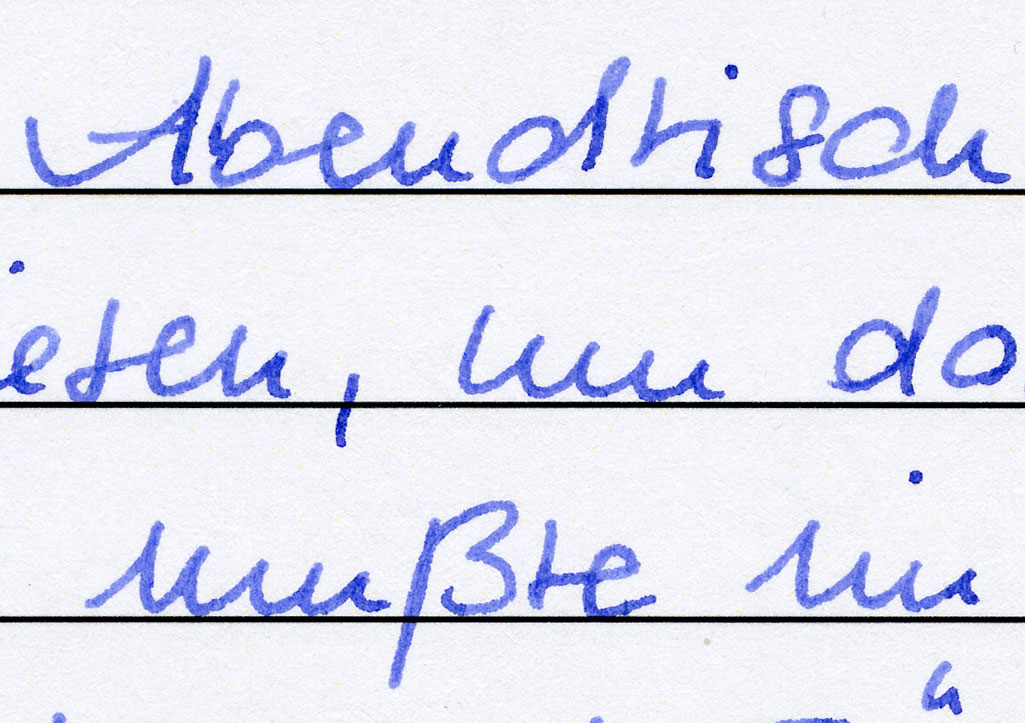 Abendtisch
iesen, um do
mußte in